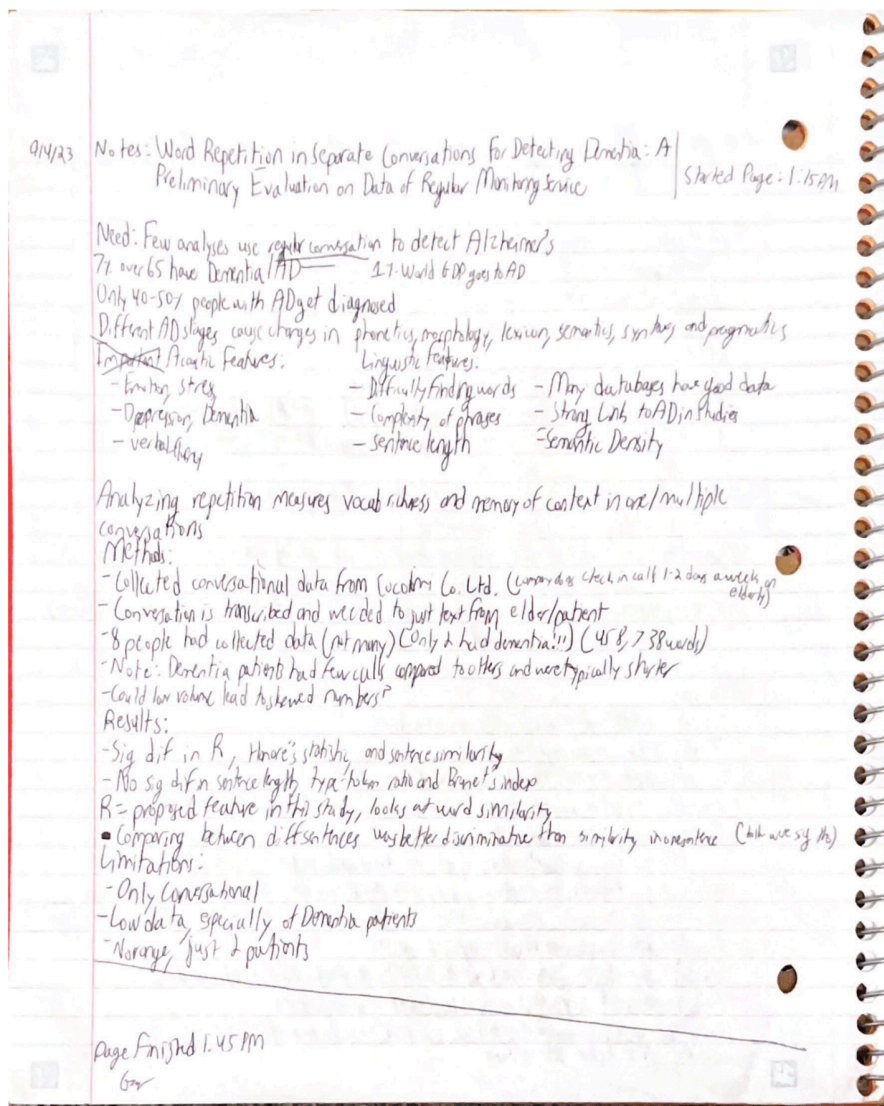 9/4/23 Notes: Word Repetition in Separate Conversations For Detecting Dementia: A
Preliminary Evaluation on Data of Regular Monitoring Service
Started Page: 1:15 PM
Need: Few analyses use regular conversation to detect Alzheimer's
7% over 65 have Dementia/AD — 1% World GDP goes to AD
Only 40-50% people with AD get diagnosed
Different AD stages cause changes in phonetics, morphology, lexicon, semantics, and pragmatics
Important Acoustic Features: Linguistic Features:
- Emotion, stress - Difficulty finding words - Many databases have good data
- Depression, Dementia - Complexity of phrases - Strong Link to AD in studies
- verbal - sentence length - Semantic Density
Analyzing repetition measures vocab richness and memory of context in one/multiple
conversations
Methods:
- Collected conversational data from Co. Ltd. (check in calls 1-2 days a week on
elderly)
- Conversation is transcribed and weeded to just text from elder/patient
- 8 people had collected data (not many) (Only 2 had dementia!!!) (458, > 38 words)
- Note: Dementia patients had few calls compared to others and were typically shorter
- Could low volume lead to skewed numbers?
Results:
- Sig dif in R, Honore's statistic, and sentence similarity
- No sig dif in sentence length, type-token ratio and Brunet's index
R = proposed feature in this study, looks at word similarity
• Comparing between diff sentences was better discriminative than similarity in one sentence (both were sig tho)
Limitations:
- Only Conversational
- Low data, especially of Dementia patients
- No range, just 2 patients
Page Finished 1:45 PM